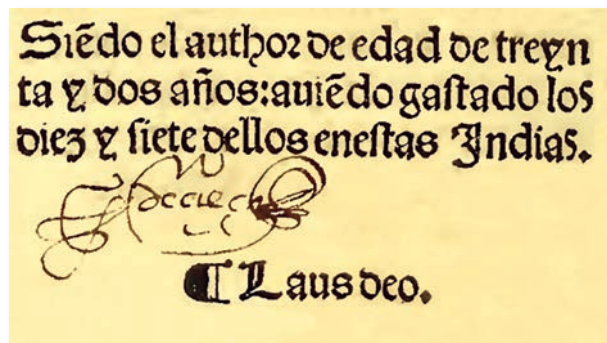 Siēdo el author de edad de treyn
ta y dos años: auiēdo gastado los
diez y siete dellos enestas Indias.
¶ Laus deo.